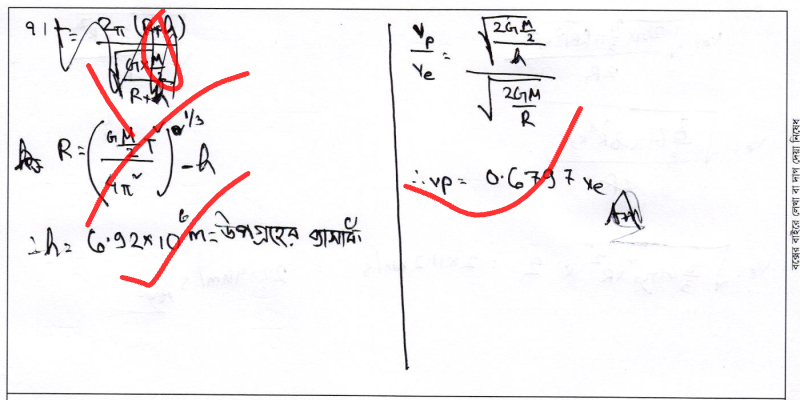 91 t = 2π (R+h) / √(G×M/2 / R+h)
R = (G M/2 T² / 4π²)^1/3 - h
∴ h = 6.92×10^6 m = উপগ্রহের ব্যাসার্ধ
vp/ve = √(2G M/2 / h) / √(2GM / R)
∴ vp = 0.6797 ve
Ans
বক্সের বাইরে লেখা বা দাগ দেয়া নিষেধ